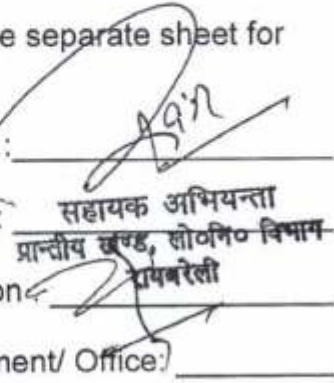 e separate sheet for
:
सहायक अभियन्ता
प्रान्तीय खण्ड, लो०नि० विभाग
रायबरेली
on
ment/ Office: